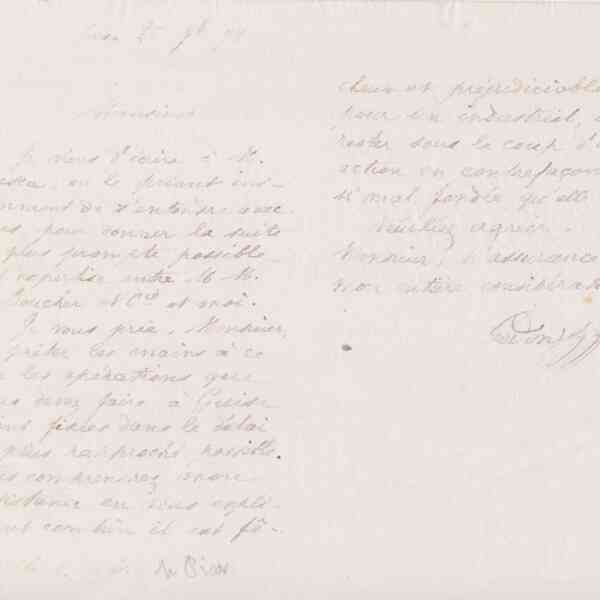 Monsieur
Je vous écris à M.
en le priant ins-
de s'entendre avec
pour donner la suite
plus prompte possible
expertise entre M M.
Boucher et Cie et moi.
Je vous prie, Monsieur,
prêter les mains à ce
les opérations que
devez faire à Guise
fixées dans le délai
plus rapproché possible.
comprendrez mon
insistance en vous expli-
combien il est fâ-
cheux et préjudiciable
pour un industriel, de
rester sous le coup d'
action en contrefaçon
si mal fondée qu'elle
Veuillez agréer,
Monsieur, l'assurance
mon entière considération
Godin